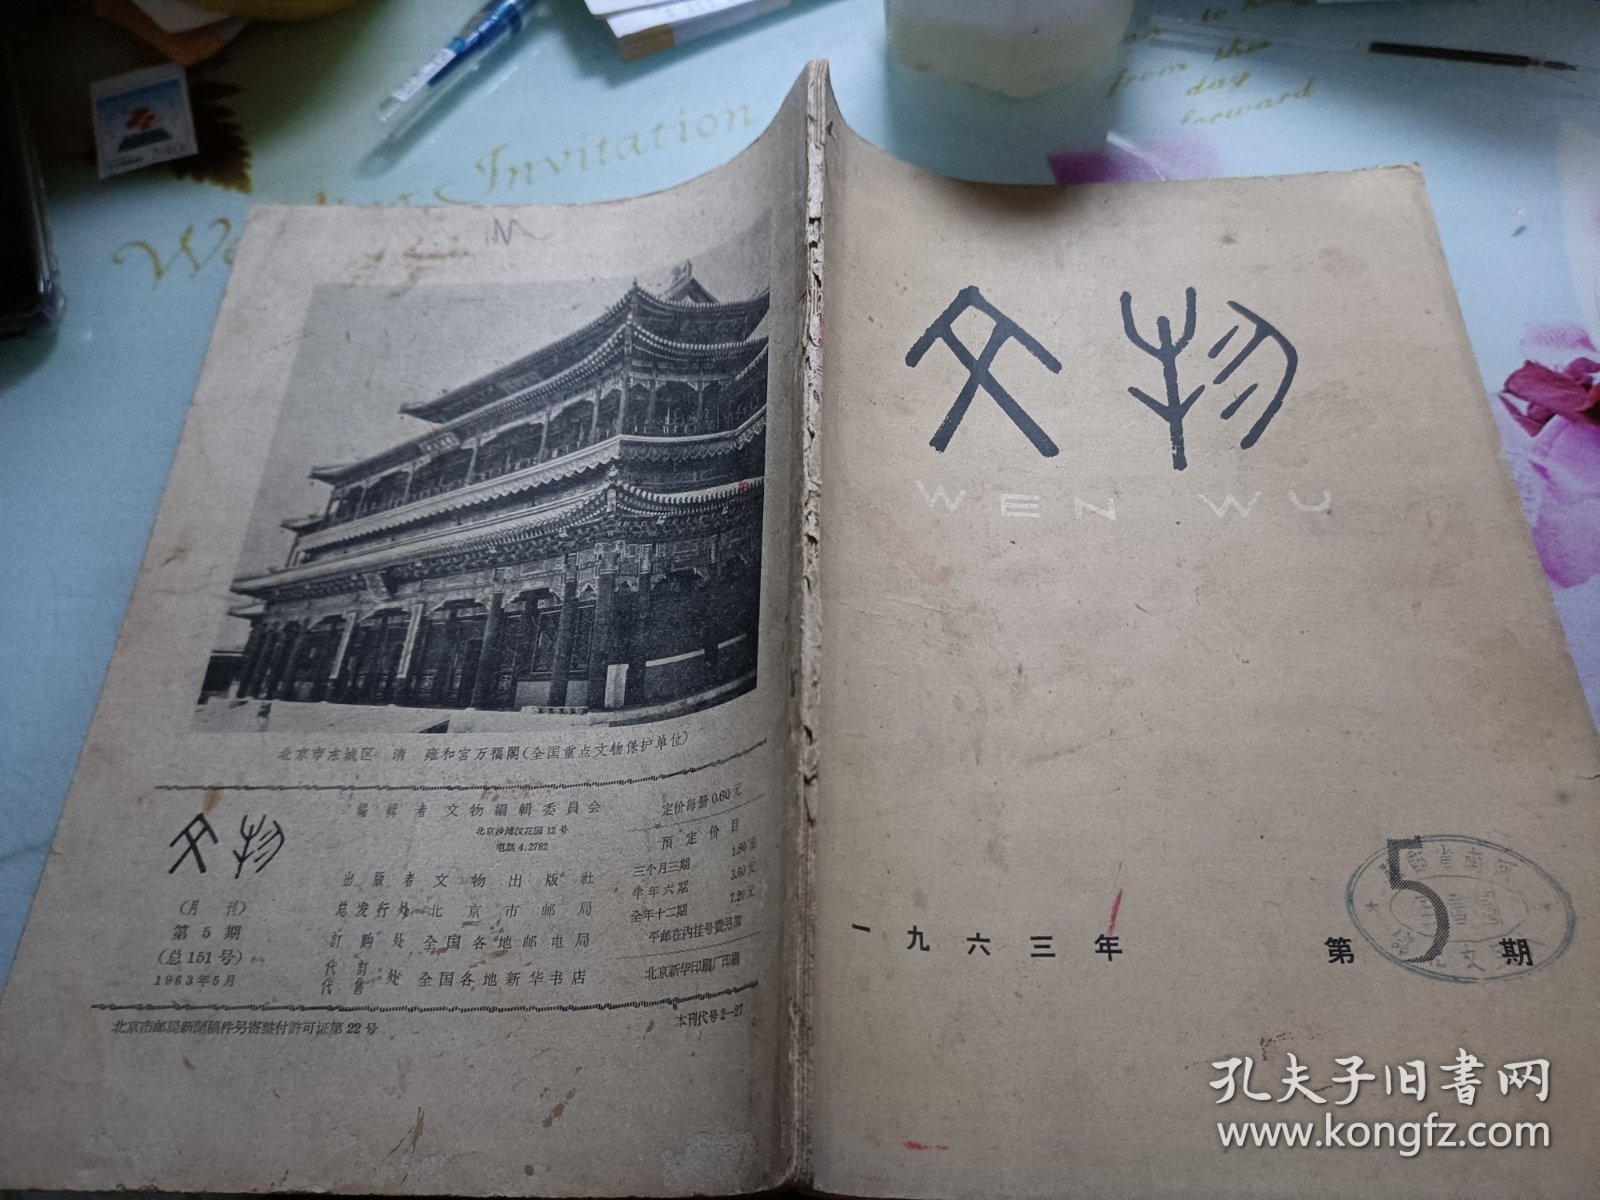 文物
WEN WU
一九六三年
第5期
北京市东城区 清 雍和宫万福閣(全国重点文物保护单位)
文物
(月刊)
第5期
(总151号)
1963年5月
編輯者 文物編輯委員会
北京沙滩汉花园12号
电話4.2782
出版者 文物出版社
总发行处 北京市邮局
訂购处 全国各地邮电局
代訂
代售 处 全国各地新华书店
定价每册0.60元
預定价目
三个月三期 1.80元
半年六期 3.60元
全年十二期 7.20元
平邮在内挂号費另加
北京新华印刷厂印刷
北京市邮局新聞稿件另寄整付許可证第22号
本刊代号2—27
Invitation
day
forward
孔夫子旧书网
www.kongfz.com